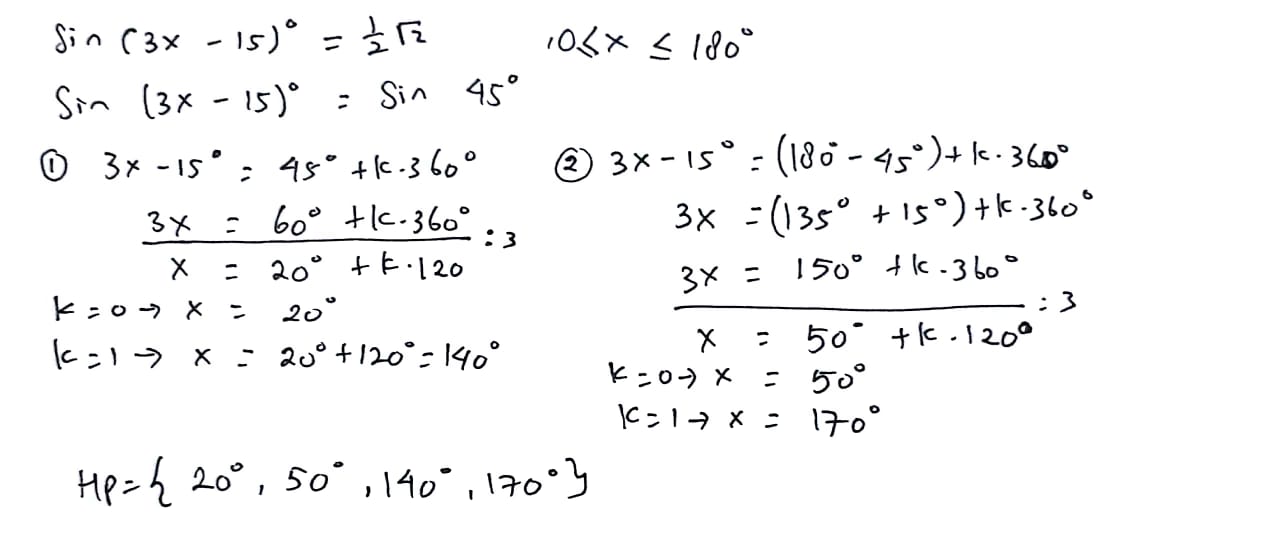 Sin (3x - 15)° = ½√2 , 0 ≤ x ≤ 180°
Sin (3x - 15)° = Sin 45°
① 3x - 15° = 45° + k.360°
3x = 60° + k.360° : 3
x = 20° + k.120
k = 0 → x = 20°
k = 1 → x = 20° + 120° = 140°
② 3x - 15° = (180° - 45°) + k.360°
3x = (135° + 15°) + k.360°
3x = 150° + k.360° : 3
x = 50° + k.120°
k = 0 → x = 50°
k = 1 → x = 170°
Hp = { 20°, 50°, 140°, 170° }